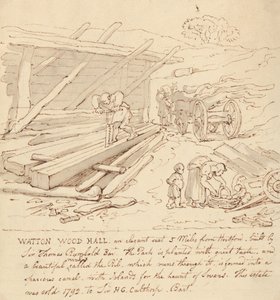 WATTON WOOD HALL. an elegant seat 5 Miles from Hertford. built by
Sir Thomas Rumbold Bar.t the Park is planted with great taste, and
a beautiful rattles the Rib, which runs through it, is formed into a
spacious canal with Islands for the haunt of Swans. This estate
was sold 1792. to Sir H G. Calthorpe Bart.